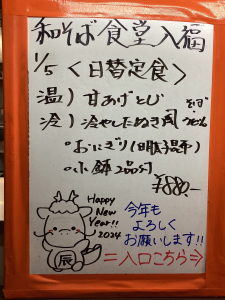 和そば食堂入福
1/5 <日替定食>
温) 甘あげとじ
冷) 冷やしたぬき風
そば・うどん
・おにぎり(日替)
・小鉢2品付
¥880.-
Happy
New
Year!!
2024
辰
今年も
よろしく
お願いします!!
=入口こちら⇒